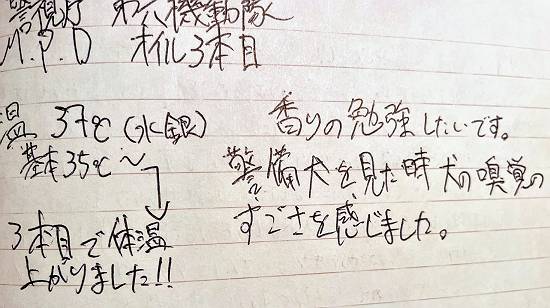 警視庁 第六機動隊
M.P.D オイル3本目
温 37℃(水銀)
基本35℃〜
3本目で体温
上がりました!!
香りの勉強したいです。
警備犬を見た時犬の嗅覚の
すごさを感じました。